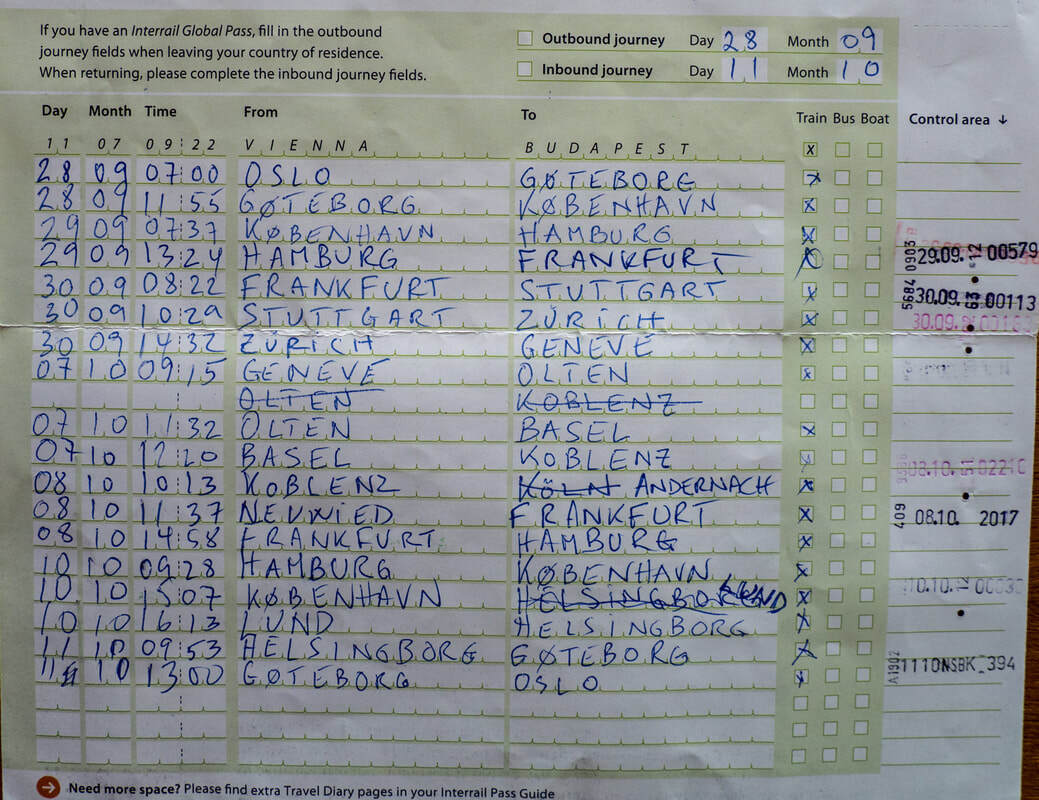 If you have an Interrail Global Pass, fill in the outbound
journey fields when leaving your country of residence.
When returning, please complete the inbound journey fields.
Outbound journey Day 28 Month 09
Inbound journey Day 11 Month 10
Day Month Time From To Train Bus Boat Control area ↓
11 07 09:22 VIENNA BUDAPEST x
28 09 07:00 OSLO GØTEBORG x
28 09 11:55 GØTEBORG KØBENHAVN x
29 09 07:37 KØBENHAVN HAMBURG x
29 09 13:24 HAMBURG FRANKFURT x 0903 29.09. 00579
30 09 08:22 FRANKFURT STUTTGART x 5684 30.09. 63 00113
30 09 10:29 STUTTGART ZÜRICH x 30.09.
30 09 14:32 ZÜRICH GENEVE x
07 10 09:15 GENEVE OLTEN x
OLTEN KOBLENZ
07 10 11:32 OLTEN BASEL x
07 10 12:20 BASEL KOBLENZ x
08 10 10:13 KOBLENZ KÖLN ANDERNACH x
08 10 11:37 NEUWIED FRANKFURT x 409 08.10. 2017
08 10 14:58 FRANKFURT HAMBURG x
10 10 09:28 HAMBURG KØBENHAVN x
10 10 15:07 KØBENHAVN HELSINGBORG LUND x 10.10.
10 10 16:13 LUND HELSINGBORG x
11 10 09:53 HELSINGBORG GØTEBORG x
11 10 13:00 GØTEBORG OSLO x A1902 1110NSBK_394
Need more space? Please find extra Travel Diary pages in your Interrail Pass Guide